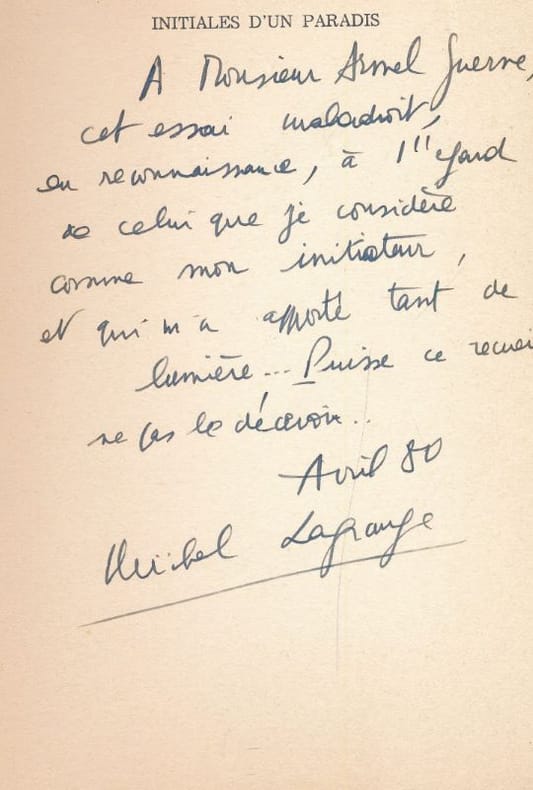 INITIALES D'UN PARADIS
A Monsieur Armel Guerne,
cet essai maladroit,
en reconnaissance, à l'égard
de celui que je considère
comme mon initiateur,
et qui m'a apporté tant de
lumière... Puisse ce recuei
ne pas le décevoir..
Avril 80
Michel Lagrange